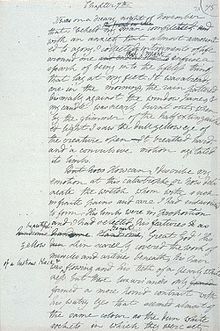 Chapter 7th
It was on a dreary night of November
that I beheld my man compleated; and
with an anxiety that almost amounted
to agony I collected instruments of life
around me that I might infuse a
spark of being into the lifeless thing
that lay at my feet. It was already
one in the morning, the rain pattered
dismally against the window panes, &
my candle was nearly burnt out, when
by the glimmer of the half extinguish
ed light I saw the dull yellow eye of
the creature open. It breathed hard,
and a convulsive motion agitated
its limbs.
But how How can I describe my
emotion at this catastrophe; or how deli
neate the wretch whom with such in
finite pains and care I had endeavoured
to form. His limbs were in proportion
and I had selected his features as
beautiful
handsome. Handsome Great God! His
yellow skin scarcely covered the work of
muscles and arteries beneath; his hair
of a lustrous black &
was flowing and his teeth of a pearly white
ness but these luxuriances only formed
a more horrid contrast with
his watry eyes that seemed almost of
the same colour as the dun white
sockets in which they were set